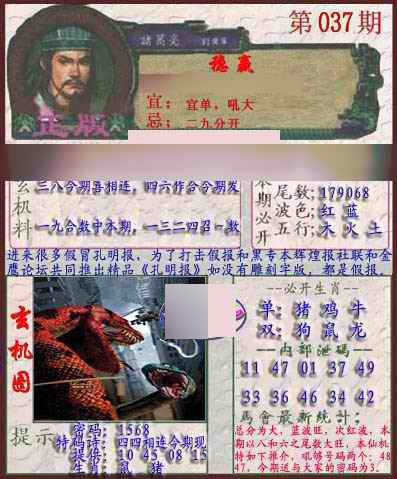 第037期
諸葛亮
稳赢
宜：宜单，吼大
忌：二九分开
正版
三八今期喜相连，四六作合今期发
玄机料
一九合数中本期，一三二四召一数
本期必开
尾数：179068
波色：红 蓝
五行：木 火 土
进来很多假冒孔明报，为了打击假报和黑专本辉煌报社联和金
鹰论坛共同推出精品《孔明报》如没有雕刻字版，都是假报。
玄机图
--必开生肖--
单：猪 鸡 牛
双：狗 鼠 龙
--内部泄码--
11 47 01 37 49
33 36 46 34 42
馬會最新统計：
提示
密码：1568
特码诗：四四相连今期现
提供：10 45 08 15
生肖：鼠、猪
总分为大，蓝波旺，次红波，本
期以八和六之尾数大旺，本仙机
特如下推介，吼够号码两个：48
47，今期送与大家的密码为3．